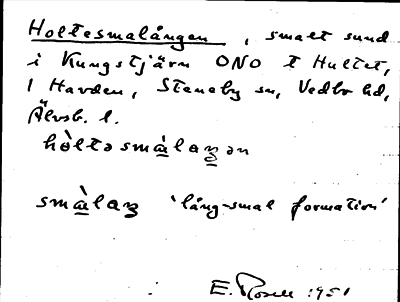 Holtesmalången, smalt sund
i Kungstjärn ONO t Hultet,
1 Havden, Steneby sn, Vedbo hd,
Älvsb. l.
hòltəsmàlaʒən
smàlaʒ 'lång-smal formation'
E. Rosell 1951